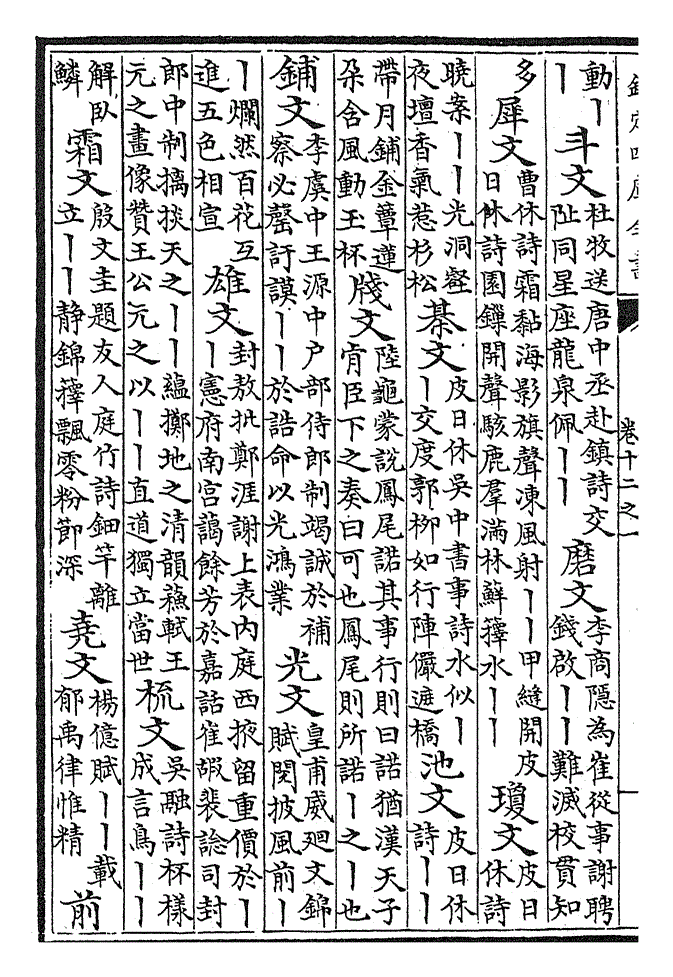 欽定四庫全書
卷十二之一
動丨
丨
斗文
杜牧送唐中丞赴鎮詩交
阯同星座龍泉佩丨丨
磨文
李商隱為崔從事謝聘
錢啟丨丨難滅校貫知
多
犀文
曹休詩霜黏海影旗聲凍風射丨丨甲縫開皮
日休詩園鏁開聲駭鹿羣滿林蘚籜水丨丨
瓊文
皮日
休詩
曉案丨丨光洞壑
夜壇香氣惹杉松
棊文
皮日休吳中書事詩水似丨
丨交度郭柳如行陣儼遮橋
池文
皮日休
詩丨丨
帶月鋪金簟蓮
朶含風動玉杯
牋文
陸龜蒙說鳳尾諾其事行則曰諾猶漢天子
肯臣下之奏曰可也鳳尾則所諾丨之丨也
鋪文
李虞中王源中户部侍郎制竭誠於補
察必罄訏謨丨丨於誥命以光鴻業
光文
皇甫威廻文錦
賦閱披風前丨
丨爛然百花互
進五色相宣
雄文
封敖批鄭涯謝上表内庭西掖留重價於丨
丨憲府南宮藹餘芳於嘉話崔嘏裴諗司封
郎中制摛掞天之丨丨藴擲地之清韻蘓軾王
元之畫像贊王公元之以丨丨直道獨立當世
梳文
吳融詩杯樣
成言鳥丨丨
解臥
鱗
霜文
殷文圭題友人庭竹詩鈿竿離
立丨丨靜錦籜飄零粉節深
堯文
楊億賦丨丨載
郁禹律惟精
前